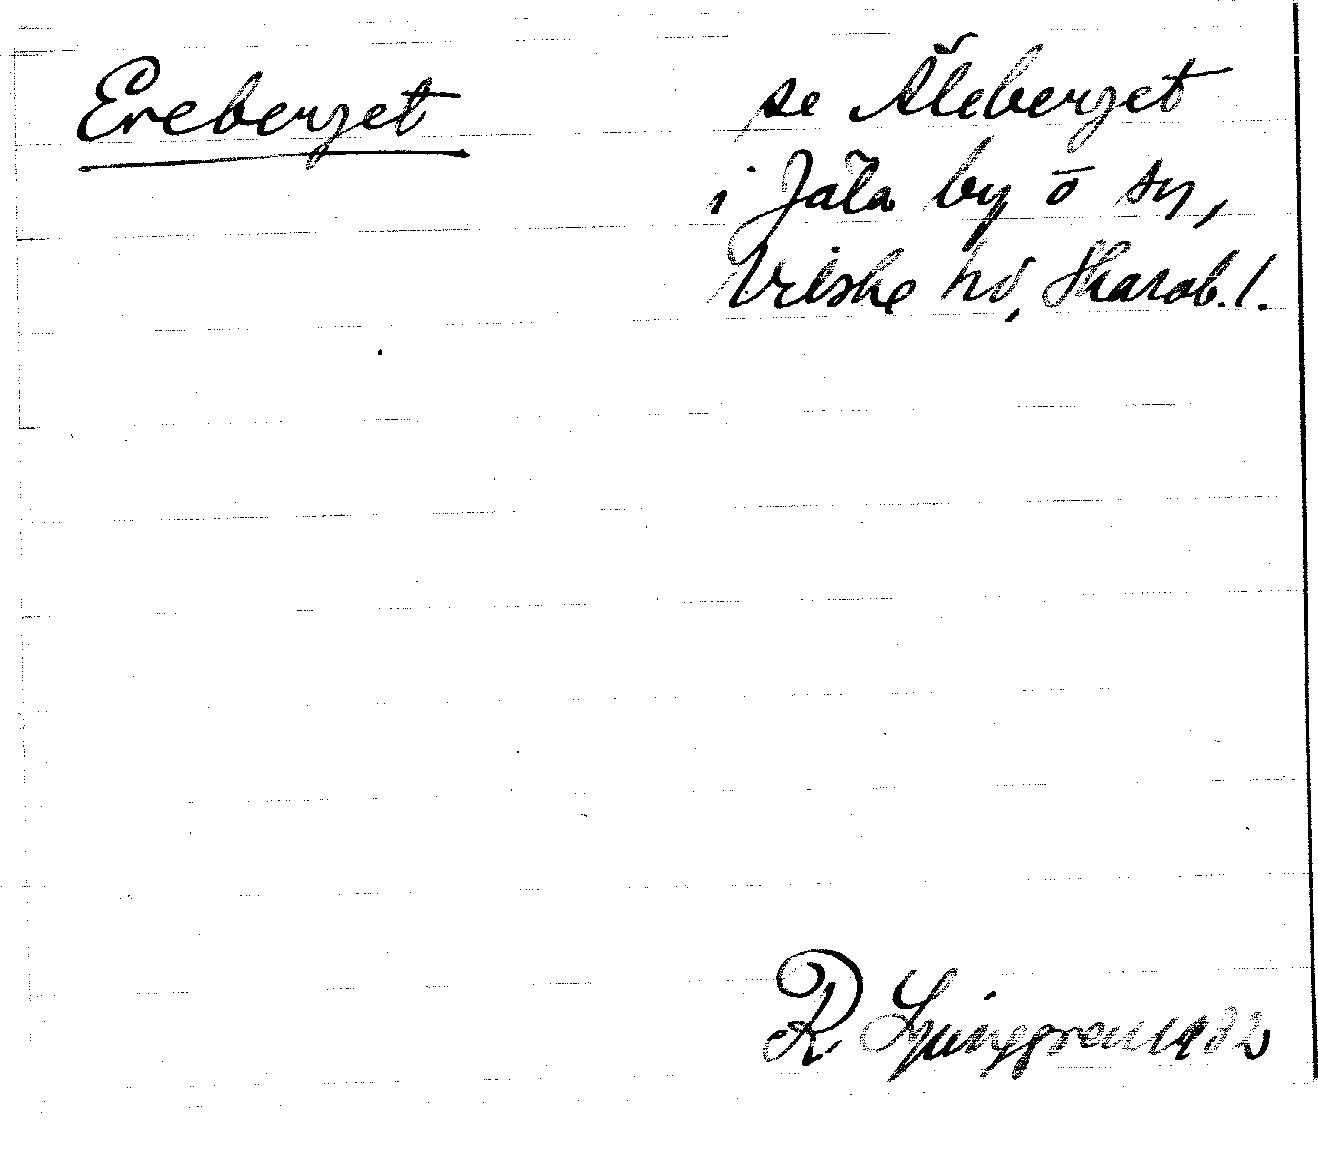 Ereberget
se Åleberget
i Jäla by o sn,
Vilske hd, Skarab. l.
R. Ljunggren 1932